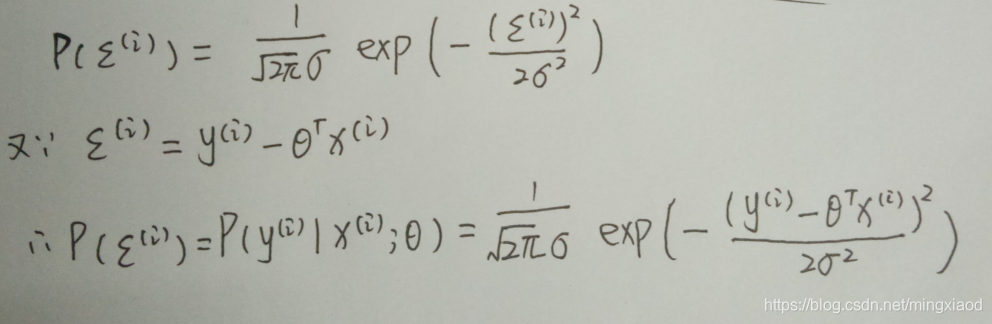 P(ε^(i)) = 1/(√2π σ) exp(-(ε^(i))²/(2σ²))
又∵ ε^(i) = y^(i) - θ^T x^(i)
∴ P(ε^(i)) = P(y^(i) | x^(i); θ) = 1/(√2π σ) exp(-(y^(i) - θ^T x^(i))²/(2σ²))
https://blog.csdn.net/mingxiaod